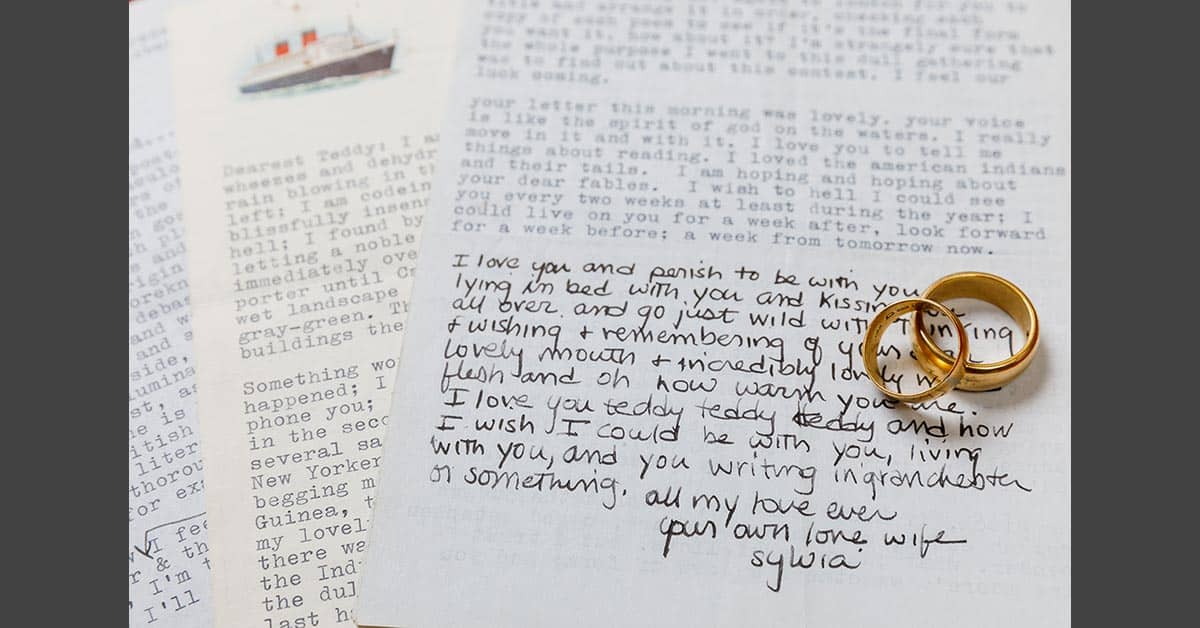 the
and
side,
lumina
st, as
e is
itish
liter
thorou
for ex
I fee
r & th
I'm t
I'll
Dearest Teddy: I a
wheezes and dehydr
rain blowing in t
left; I am codein
blissfully insen
hell; I found by
letting a noble
immediately ove
porter until C
wet landscape
gray-green. Th
buildings the
Something wo
happened; I
phone you;
in the seco
several sa
New Yorker
begging m
Guinea, t
my lovel
there wa
the Ind
the dul
last h
title and arrange it in order, checking each
copy of each poem to see if it's the final form
you want it. how about it? I'm strangely sure that
the whole purpose I went to this dull gathering
was to find out about this contest. I feel our
luck coming.
your letter this morning was lovely. your voice
is like the spirit of god on the waters. I really
move in it and with it. I love you to tell me
things about reading. I loved the american indians
and their tails. I am hoping and hoping about
your dear fables. I wish to hell I could see
you every two weeks at least during the year; I
could live on you for a week after, look forward
for a week before; a week from tomorrow now.
I love you and perish to be with you
lying in bed with you and kissing
all over and go just wild with
+ wishing + remembering of your
lovely mouth + incredibly lovely
flesh and oh how warm you me.
I love you teddy teddy teddy and how
I wish I could be with you, living
with you, and you writing in granchester
or something. all my love ever
your own love wife
sylvia